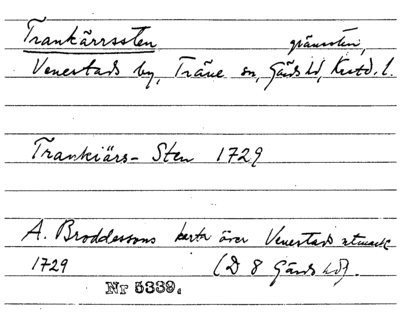 Trankärrssten gränssten,
Venestads by, Träne sn, Gärds hd, Kristd. l.
Trankiärs-Sten 1729
A. Broddessons karta över Venestads utmark
1729 (D 8 Gärds hd).
Nr 5339.